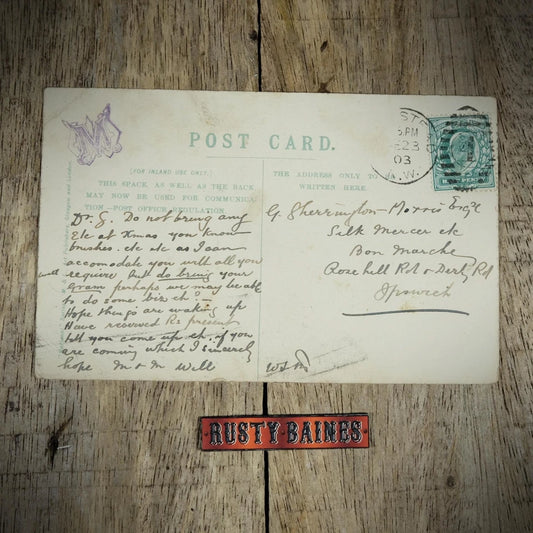 M
POST CARD.
(FOR INLAND USE ONLY.)
THIS SPACE, AS WELL AS THE BACK,
MAY NOW BE USED FOR COMMUNICA-
TION—POST OFFICE REGULATION.
THE ADDRESS ONLY TO BE
WRITTEN HERE.
5 PM
23
03
Dr. G. Do not bring any
Etc at Xmas you know
brushes. etc etc as I can
accomodate you with all you
require but do bring your
Gram perhaps we may be able
to do some biz
Hope things are waking up
Have received Rs present
till you come up if you
are coming which I sincerely
hope M & M Will
G. Sherrington-Morris Esqre
Silk Mercer etc
Bon Marche
Rose hill Rd & Derby Rd
Ipswich
RUSTY BAINES